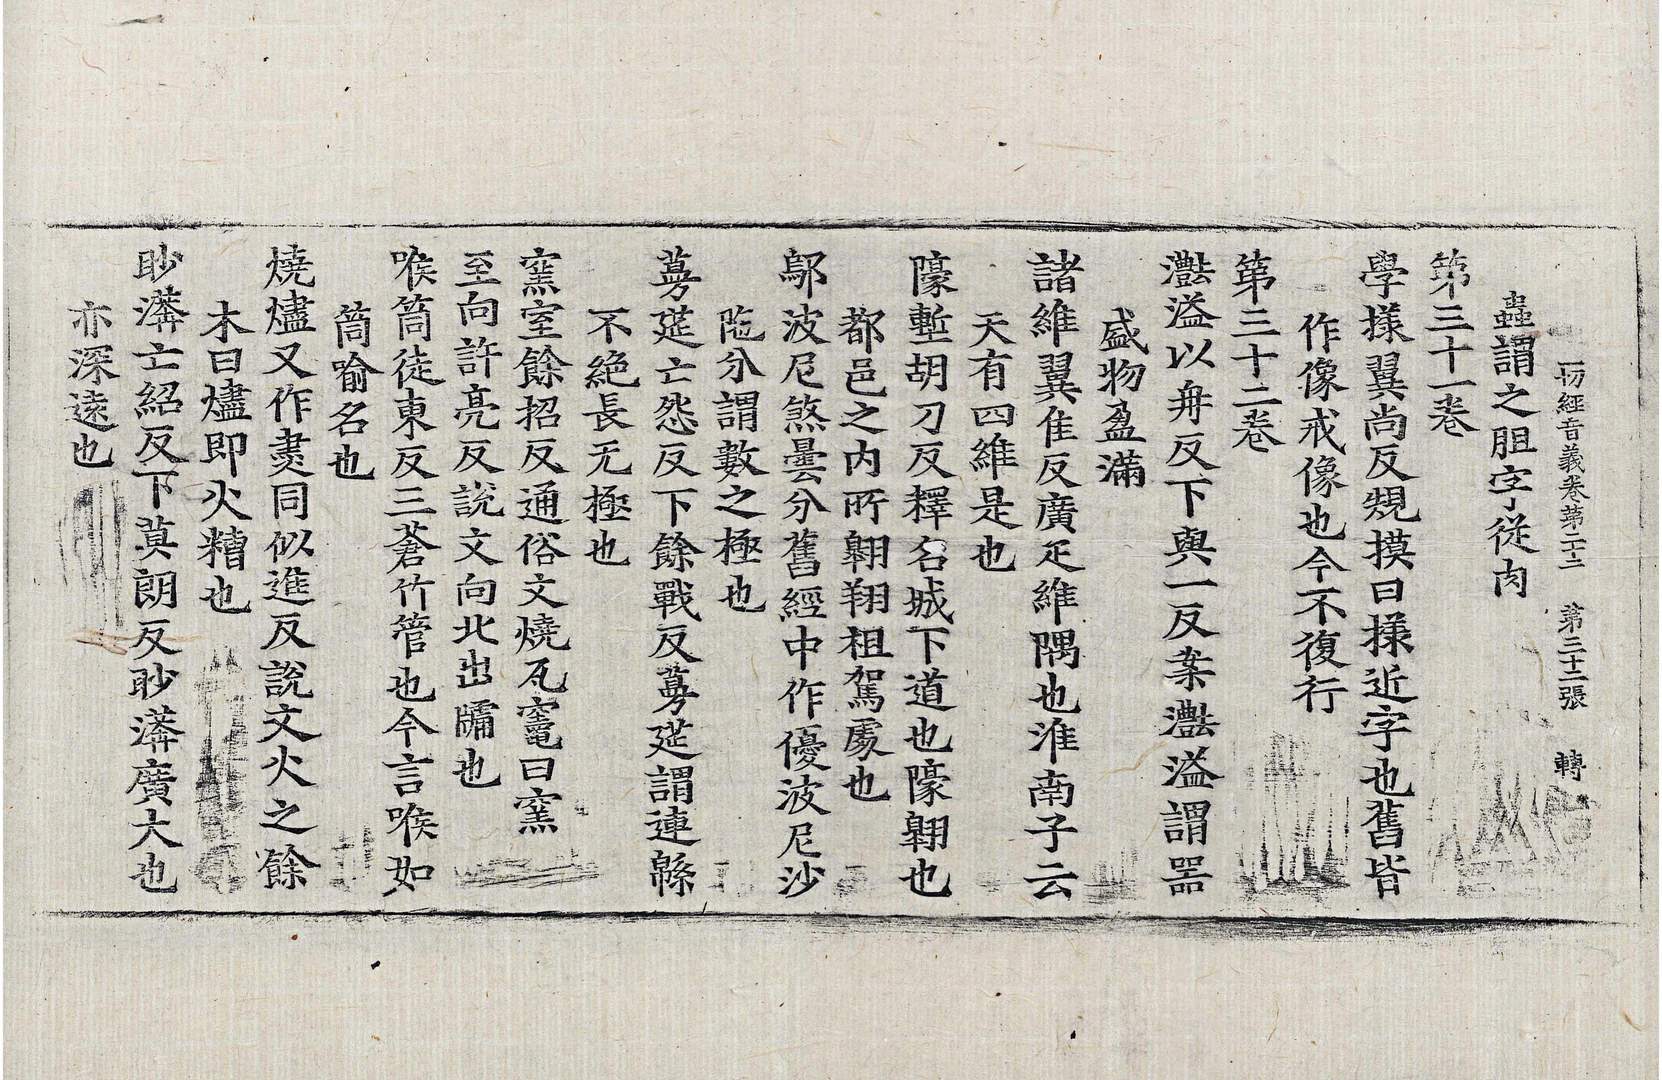 一切經音義卷第二十二　第二十二張　轉
蟲謂之胆字從肉
第三十一卷
學㨾翼尚反規摸曰㨾近字也舊皆
作像戒像也今不復行
第三十二卷
灎溢以冉反下與一反案灎溢謂器
盛物盈滿
諸維翼隹反廣疋維隅也淮南子云
天有四維是也
隍塹胡刀反釋名城下道也隍翱也
都邑之内所翱翔祖駕處也
鄔波尼煞曇分舊經中作優波尼沙
陁分謂數之極也
蔓莚亡怨反下餘戰反蔓莚謂連緜
不絕長无極也
窯室餘招反通俗文燒瓦竈曰窯
至向許亮反說文向北出牖也
喉筒徒東反三蒼竹管也今言喉如
筒喻名也
燒燼又作㶳同似進反說文火之餘
木曰燼即火糟也
眇漭亡紹反下莫朗反眇漭廣大也
亦深遠也